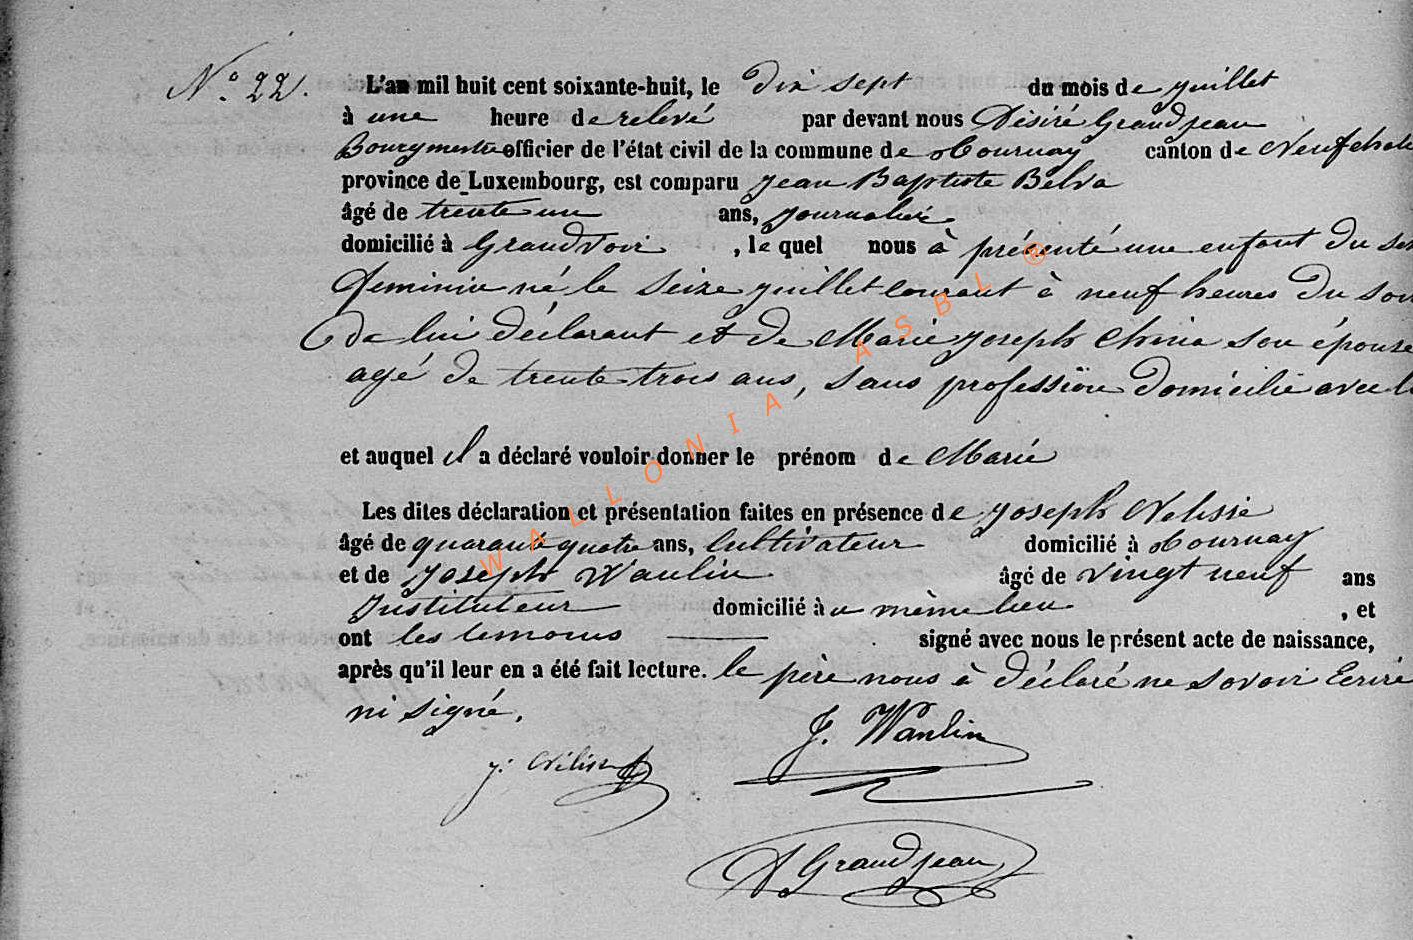 N° 22.
L'an mil huit cent soixante-huit, le dix sept du mois de juillet
à une heure de relevé par devant nous Désiré Grandjean
Bourgmestre officier de l'état civil de la commune de Tournay canton de Neufchate
province de Luxembourg, est comparu Jean Baptiste Belva
âgé de trente un ans, journalié
domicilié à Grandvoir , le quel nous à présenté une enfant du sex
feminin né le seize juillet courant à neuf heures du soir
de lui déclarant et de Marie Joseph China son épouse
agé de trente trois ans, sans profession domicilié avec l
et auquel il a déclaré vouloir donner le prénom de Marie
Les dites déclaration et présentation faites en présence de Joseph Nelisse
âgé de quarante quatre ans, Cultivateur domicilié à Tournay
et de Joseph Wanlin âgé de vingt neuf ans
Instituteur domicilié à u même lieu , et
ont les temoins signé avec nous le présent acte de naissance,
après qu'il leur en a été fait lecture. le père nous à déclaré ne savoir Ecrire
ni signé.
J. Wanlin
J. Nélisse
D Grandjean
WALLONIA ASBL ®